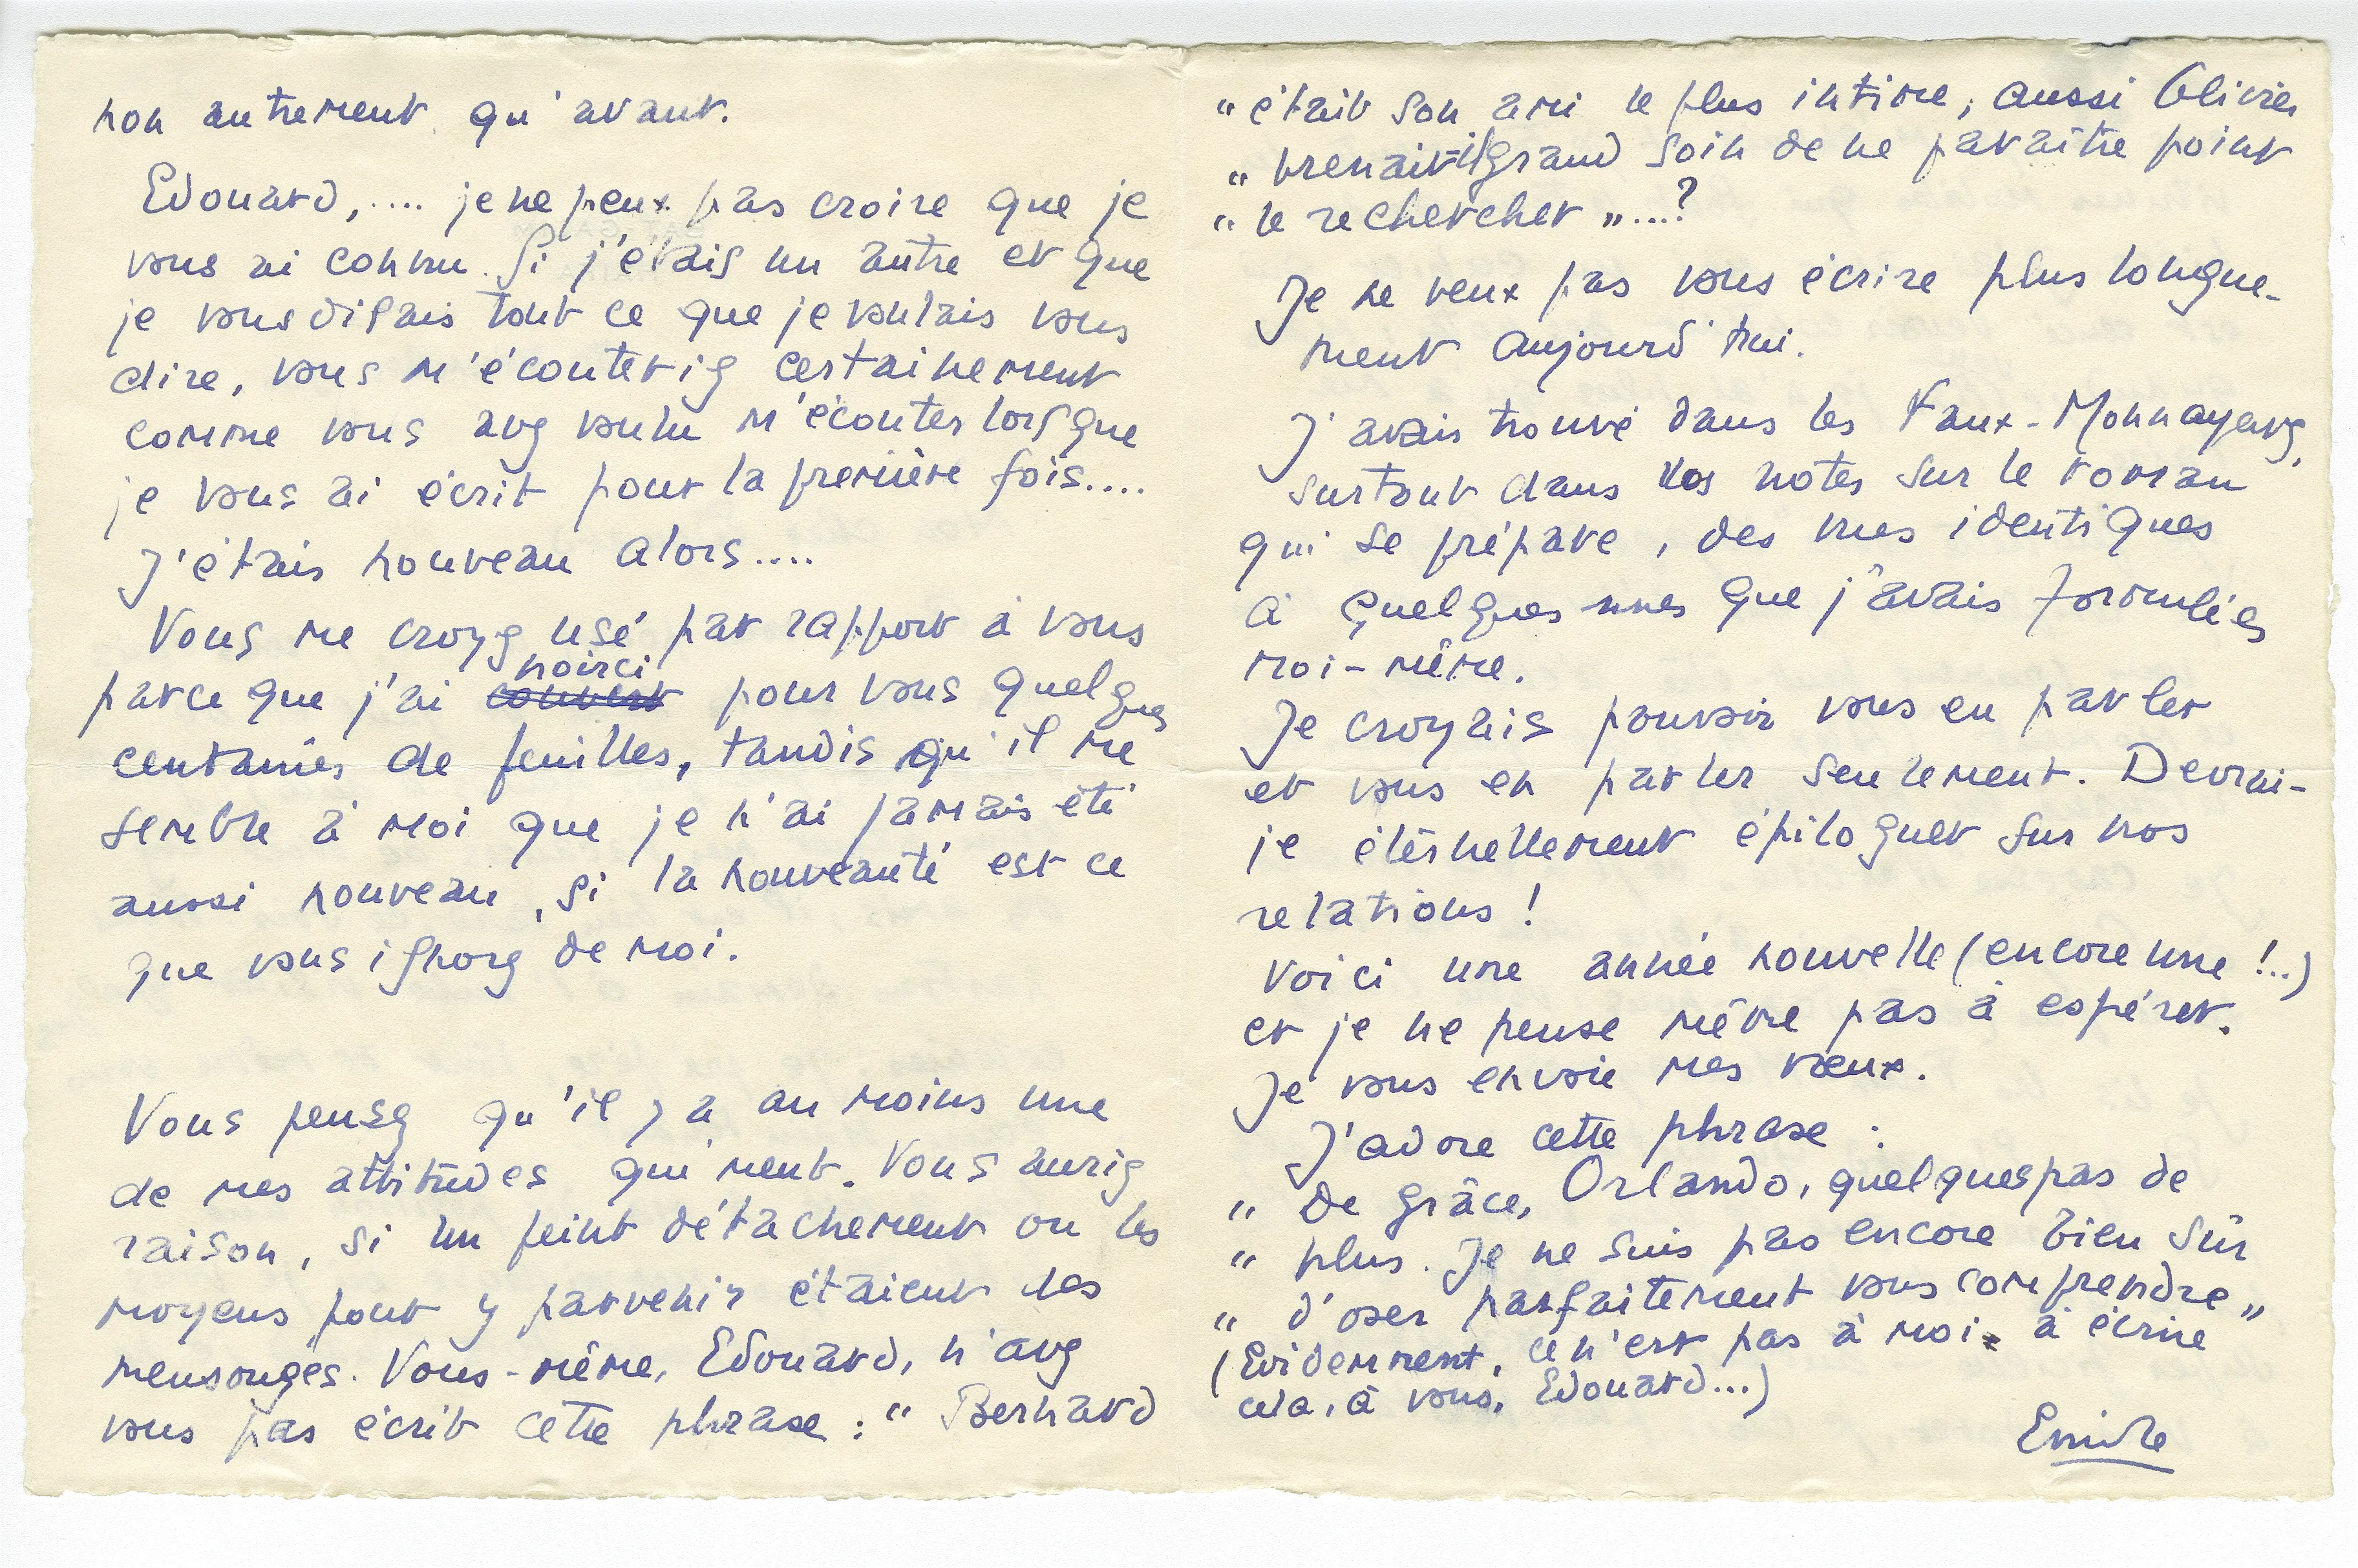 non autrement qu'avant.
Edouard,.... je ne peux pas croire que je
vous ai connu. Si j'étais un autre et que
je vous disais tout ce que je voulais vous
dire, vous m'écouteriez certainement
comme vous avez voulu m'écouter lorsque
je vous ai écrit pour la première fois....
J'étais nouveau alors....
Vous me croyez usé par rapport à vous
noirci
parce que j'ai couvert pour vous quelques
centaines de feuilles, tandis qu'il me
semble à moi que je n'ai jamais été
aussi nouveau, si la nouveauté est ce
que vous ignorez de moi.
Vous pensez qu'il y a au moins une
de mes attitudes qui ment. Vous auriez
raison, si un feint détachement ou les
moyens pour y parvenir étaient des
mensonges. Vous-même, Edouard, n'avez
vous pas écrit cette phrase : " Bernard
" était son ami le plus intime, aussi Olivier
" prenait-il grand soin de ne paraître point
" le rechercher "...?
Je ne veux pas vous écrire plus longue-
ment aujourd'hui.
J'avais trouvé dans les Faux-Monnayeurs,
surtout dans vos notes sur le roman
qui se prépare, des vues identiques
à quelques unes que j'avais formulées
moi-même.
Je croyais pouvoir vous en parler
et vous en parler seulement. Devrai-
je éternellement épiloguer sur nos
relations !
Voici une année nouvelle (encore une !..)
et je ne pense même pas à espérer.
Je vous envoie mes vœux.
J'adore cette phrase :
" De grâce, Orlando, quelques pas de
" plus. Je ne suis pas encore bien sûr
" d'oser parfaitement vous comprendre "
(Evidemment, ce n'est pas à moi à écrire
cela, à vous, Edouard...)
Emile